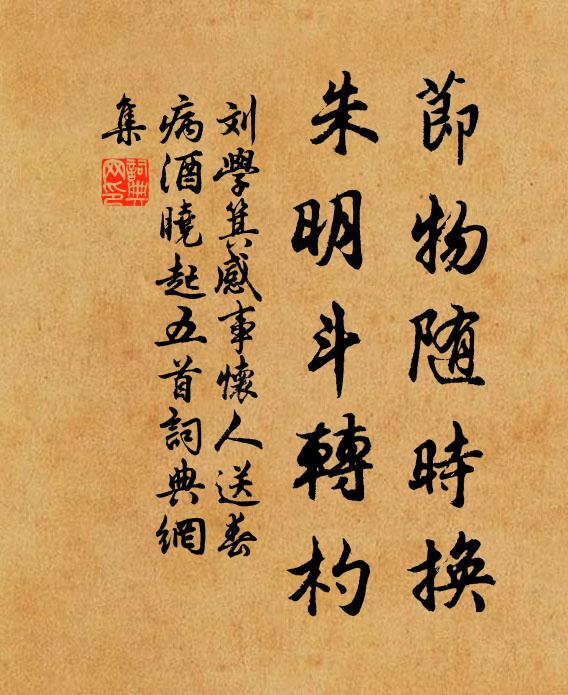 節物随時換
朱明斗轉杓
刘學箕感事懷人送春
病酒曉起五首詞典網
集
詞典
网印